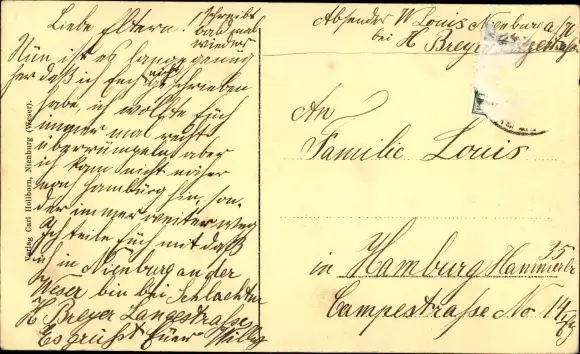 Liebe Eltern.
Schreibt
bald mal
wieder
Nun ist es lange genug
her daß ich Euch nicht geschrieben
habe, ich wollte Euch
immer mal recht
überrümpeln aber
ich kam nicht näher
nach Hamburg hin, son-
der immer weiter weg
Ich teile Euch mit daß
ich in Nienburg an der
Weser bin bei Schlachter
H Breyer Langestrasse
Es grüßt Euer Willy
Verlag Carl Hollborn, Nienburg (Weser).
Absender W Louis Nienburg a/W
bei H Breyer Langestrasse
An
Familie Louis
in Hamburg 35
Campestrasse No 14